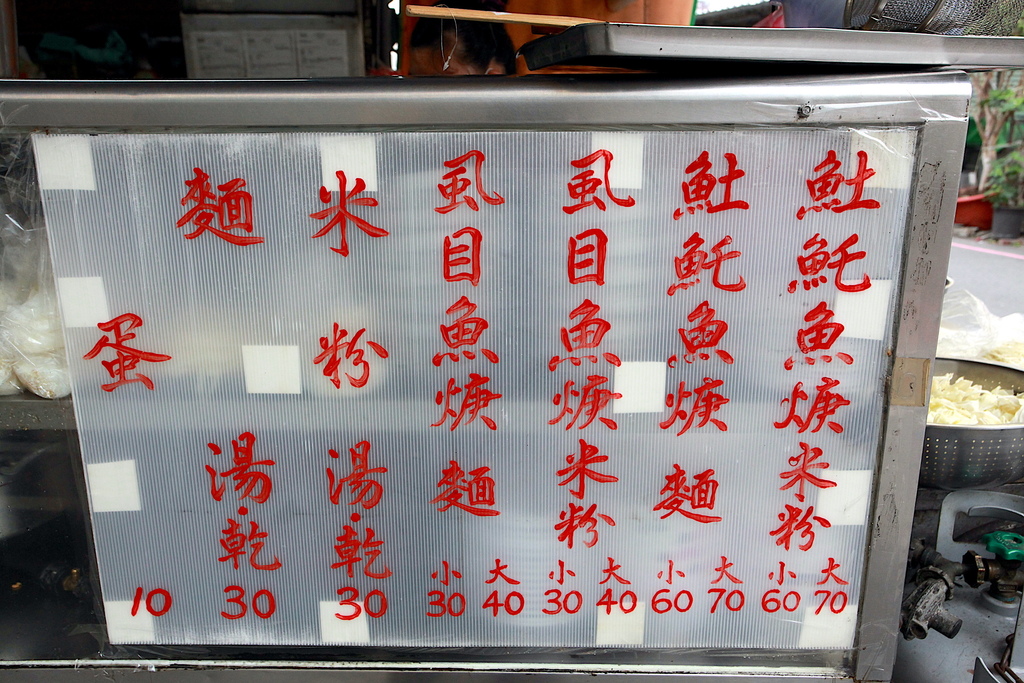 𩵚魠魚焿米粉 小60 大70
𩵚魠魚焿麵 小60 大70
虱目魚焿米粉 小30 大40
虱目魚焿麵 小30 大40
米粉 湯·乾 30
麵 湯·乾 30
蛋 10